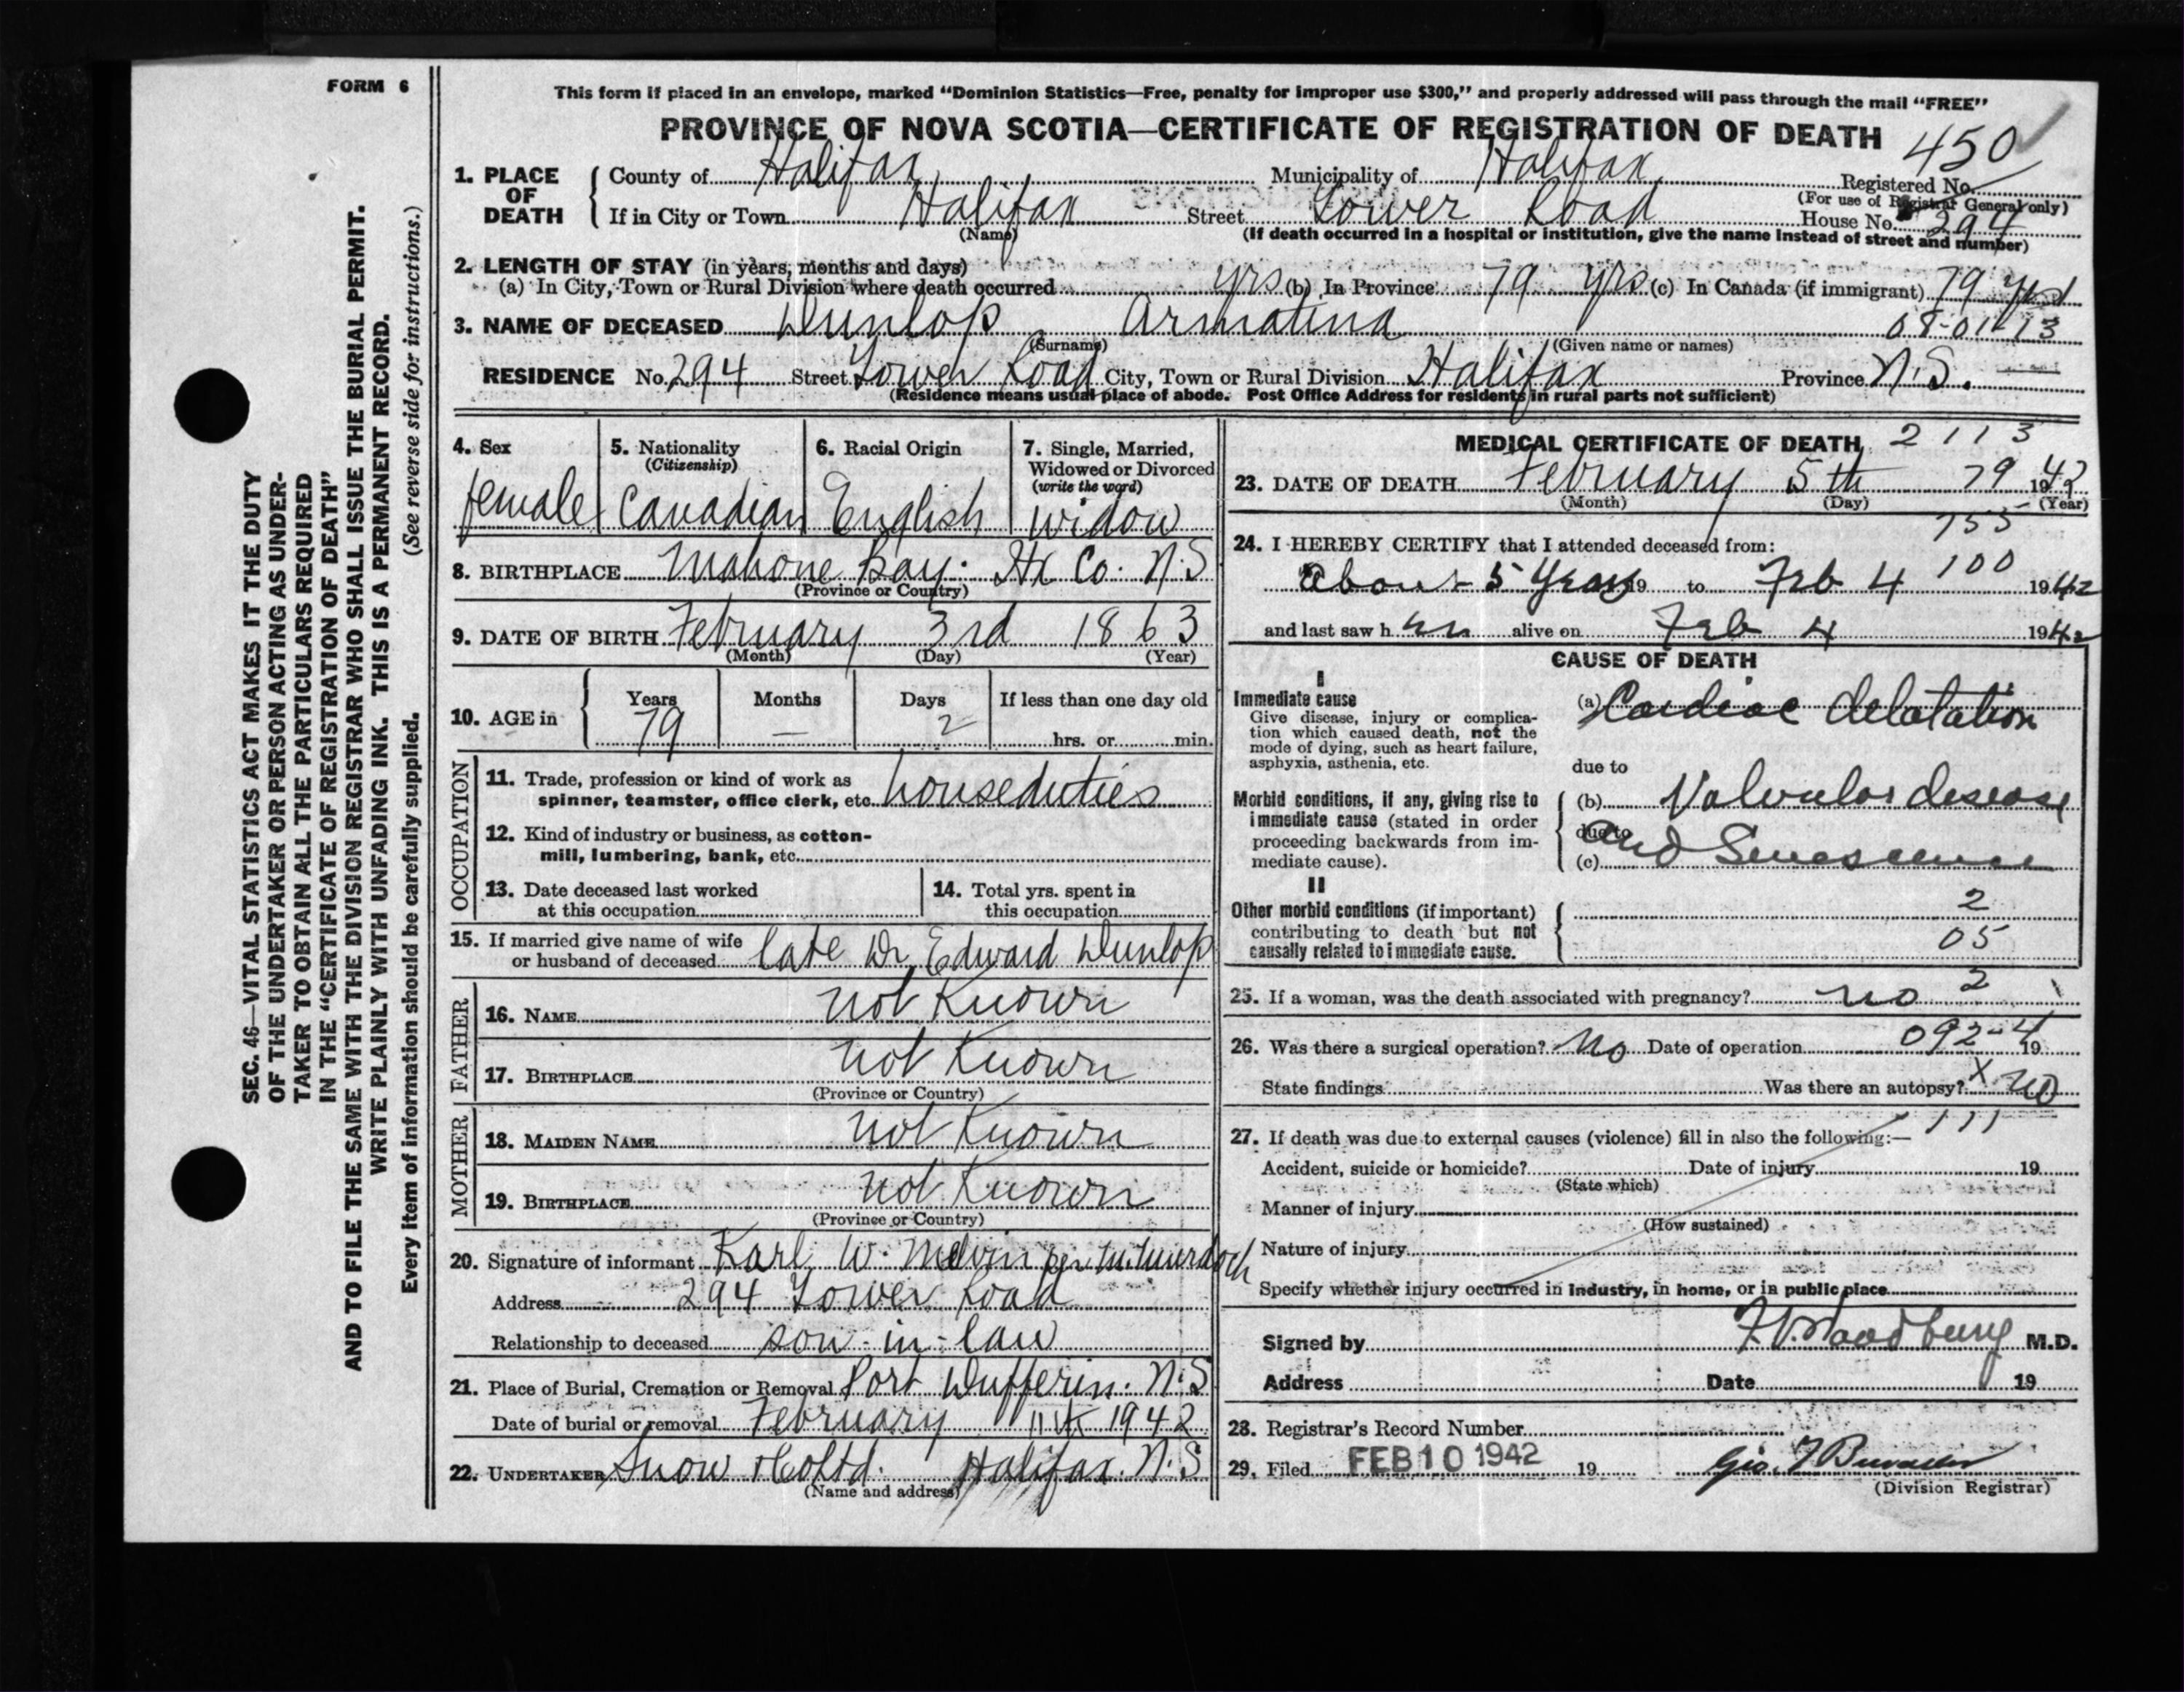 FORM 6
This form if placed in an envelope, marked "Dominion Statistics—Free, penalty for improper use $300," and properly addressed will pass through the mail "FREE"
PROVINCE OF NOVA SCOTIA—CERTIFICATE OF REGISTRATION OF DEATH
450
1. PLACE OF DEATH
County of Halifax Municipality of Halifax Registered No.
(For use of Registrar General only)
If in City or Town Halifax Street Tower Road House No. 294
(Name) (If death occurred in a hospital or institution, give the name instead of street and number)
2. LENGTH OF STAY (in years, months and days)
(a) In City, Town or Rural Division where death occurred yrs (b) In Province 79 yrs (c) In Canada (if immigrant) 79 yrs
3. NAME OF DECEASED Dunlop Armatina 08-01-13
(Surname) (Given name or names)
RESIDENCE No. 294 Street Tower Road City, Town or Rural Division Halifax Province N.S.
(Residence means usual place of abode. Post Office Address for residents in rural parts not sufficient)
4. Sex female
5. Nationality (Citizenship) Canadian
6. Racial Origin English
7. Single, Married, Widowed or Divorced (write the word) widow
8. BIRTHPLACE Mahone Bay. Hx Co. N.S
(Province or Country)
9. DATE OF BIRTH February 3rd 1863
(Month) (Day) (Year)
10. AGE in Years 79 Months — Days 2 If less than one day old
hrs. or min.
OCCUPATION
11. Trade, profession or kind of work as spinner, teamster, office clerk, etc. houseduties
12. Kind of industry or business, as cotton-mill, lumbering, bank, etc.
13. Date deceased last worked at this occupation
14. Total yrs. spent in this occupation
15. If married give name of wife or husband of deceased late Dr. Edward Dunlop
FATHER
16. NAME not Known
17. BIRTHPLACE not Known
(Province or Country)
MOTHER
18. MAIDEN NAME not Known
19. BIRTHPLACE not Known
(Province or Country)
20. Signature of informant Karl W. Melvin per M. Murdoch
Address 294 Tower Road
Relationship to deceased son-in-law
21. Place of Burial, Cremation or Removal Port Dufferin. N.S
Date of burial or removal February 11th 1942
22. UNDERTAKER Snow & Co Ltd. Halifax. N.S
(Name and address)
MEDICAL CERTIFICATE OF DEATH 2113
23. DATE OF DEATH February 5th 79 1942
(Month) (Day) (Year)
755
24. I HEREBY CERTIFY that I attended deceased from:
100
about 5 years 19 to Feb 4 1942
and last saw her alive on Feb 4 1942
CAUSE OF DEATH
I
Immediate cause
Give disease, injury or complication which caused death, not the mode of dying, such as heart failure, asphyxia, asthenia, etc.
(a) Cardiac delatation
due to
Morbid conditions, if any, giving rise to immediate cause (stated in order proceeding backwards from immediate cause).
(b) Valvular disease
due to
(c) and Senescence
II
Other morbid conditions (if important) contributing to death but not causally related to immediate cause.
2
05
25. If a woman, was the death associated with pregnancy? no 2
26. Was there a surgical operation? No Date of operation 092-4 19
State findings Was there an autopsy? X no
27. If death was due to external causes (violence) fill in also the following:— 111
Accident, suicide or homicide? Date of injury 19
(State which)
Manner of injury
(How sustained)
Nature of injury
Specify whether injury occurred in industry, in home, or in public place
Signed by F.V. Woodbury M.D.
Address Date 19
28. Registrar's Record Number
29. Filed FEB 10 1942 19
(Division Registrar)
SEC. 46—VITAL STATISTICS ACT MAKES IT THE DUTY
OF THE UNDERTAKER OR PERSON ACTING AS UNDER-
TAKER TO OBTAIN ALL THE PARTICULARS REQUIRED
IN THE "CERTIFICATE OF REGISTRATION OF DEATH"
AND TO FILE THE SAME WITH THE DIVISION REGISTRAR WHO SHALL ISSUE THE BURIAL PERMIT.
WRITE PLAINLY WITH UNFADING INK. THIS IS A PERMANENT RECORD.
Every item of information should be carefully supplied. (See reverse side for instructions.)